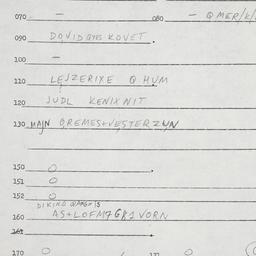 070 — 080 — Q MER/K/
090 DOVID QRES KOVET.
100 —
110 LEJZERIXE Q HUM
120 JUDL KENIXNIT
130 MAJN QREMES+VESTERZUN
150 O
151 O
152 O
160 AS+LOFM7GK1VORN
161
170 O 171 O